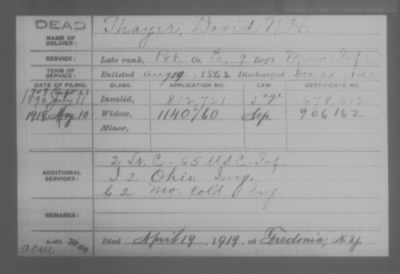 DEAD
NAME OF SOLDIER:
Thayer, David N. H.
SERVICE:
Late rank, Co. E, 9 Reg't Minn. Inf.
TERM OF SERVICE:
Enlisted Aug 19, 1862 Discharged
DATE OF FILING. CLASS. APPLICATION NO. LAW CERTIFICATE NO.
1890 July 11 Invalid, 812,721 678,612
1919 May 10 Widow, 1140760 Sep. 906162
Minor,
ADDITIONAL SERVICES:
2 Lt. C - 65 U.S.C. Inf.
I 2 Ohio
C 2 Mo. Cold Inf
REMARKS:
Died April 19, 1919, at Fredonia, N.Y.